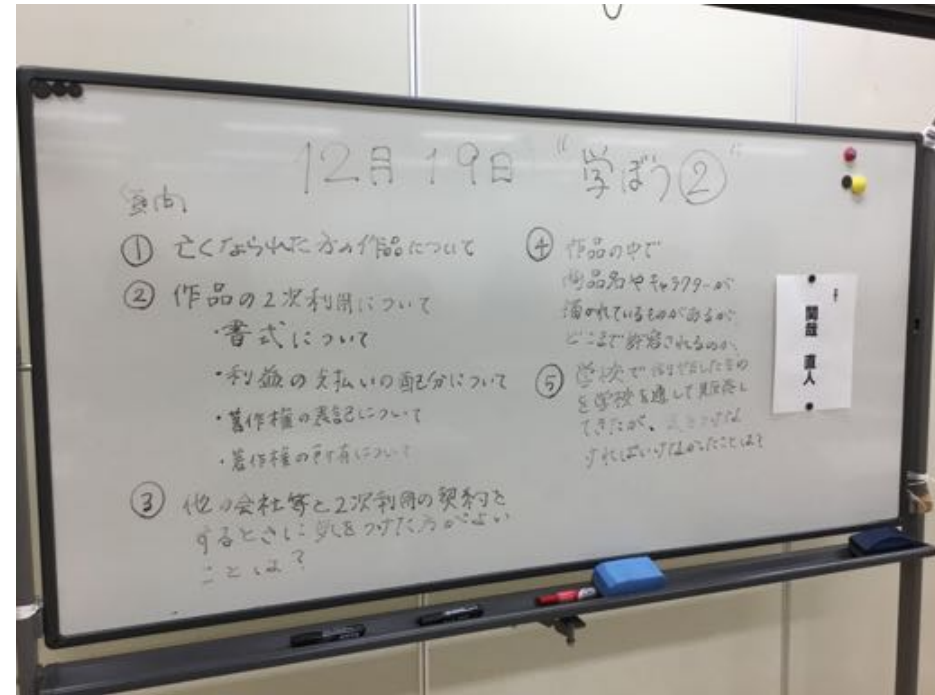 12月19日 "学ぼう②"
質問
① 亡くなられた方の作品について
② 作品の2次利用について
・書式について
・利益の支払いの配分について
・著作権の表記について
・著作権の所有について
③ 他の会社等と2次利用の契約を
するときに気をつけた方がよい
ことは?
④ 作品の中で
商品名やキャラクターが
描かれているものがあるが、
どこまで許容されるのか、
⑤ 学校で制作したもの
を学校を通して販売し
てきたが、
ければいけなかったことは?
直人